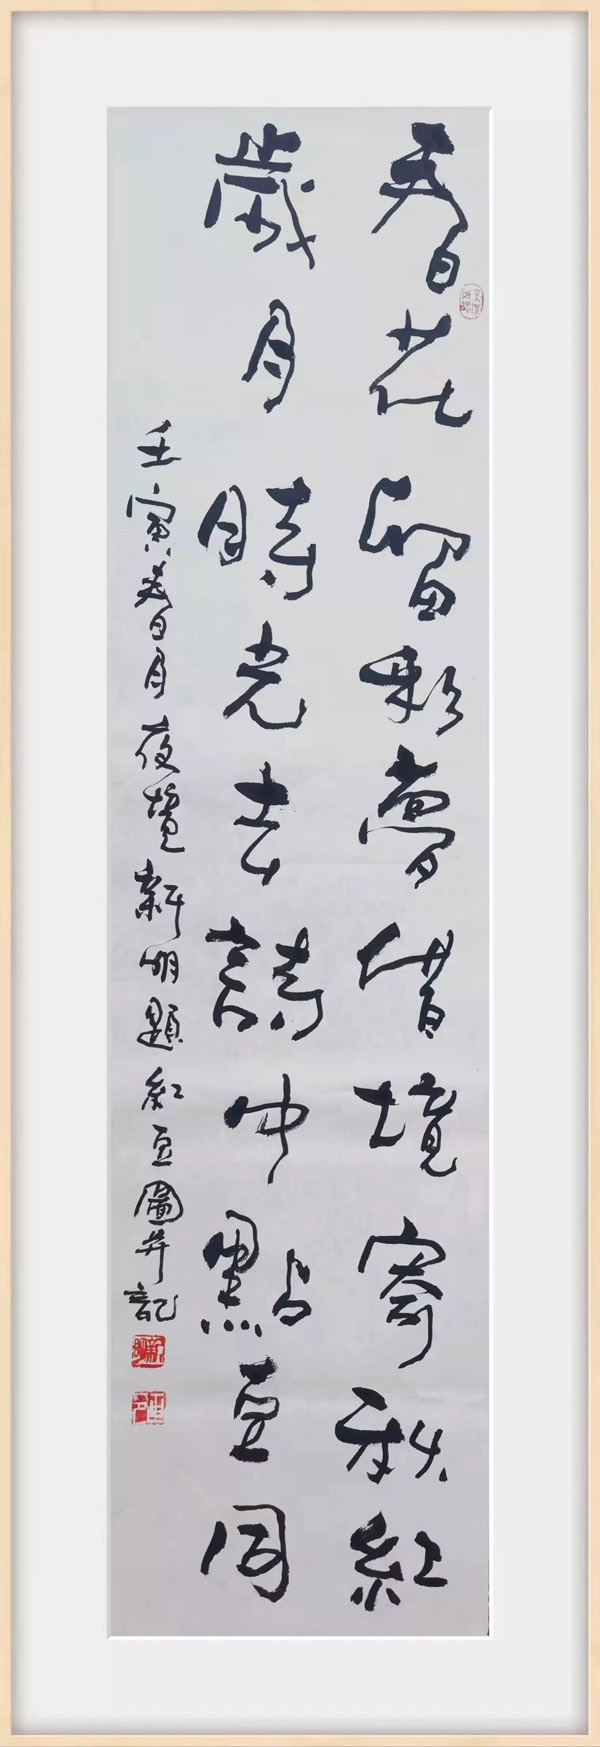 春花留彩夢借境寄秋紅
歲月時光去詩中點豆同
壬寅春月夜境新明題紅豆圖并記